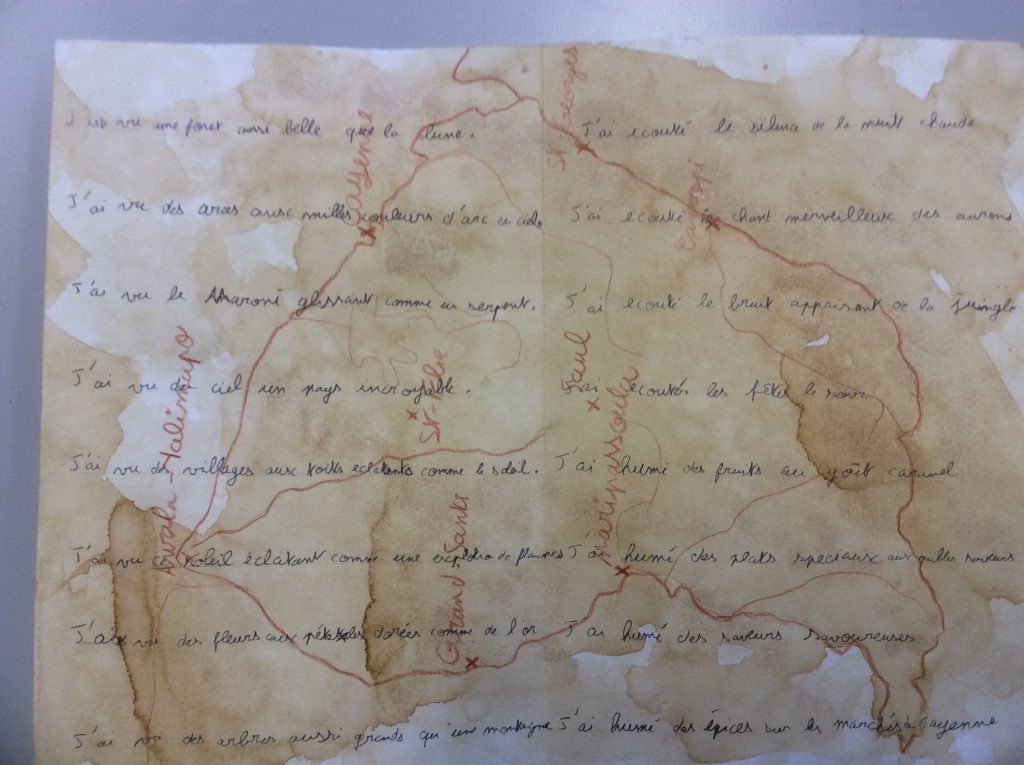 J'ai vu une foret aussi belle que la lune.
J'ai vu des aras aux milles couleurs d'arc en ciels
J'ai vu le Maroni glissant comme un serpent.
J'ai vu du ciel un pays incroyable.
J'ai vu des villages aux toits eclatants comme le soleil.
J'ai vu ce soleil éclatant comme une explosion de flammes
J'ai vu des fleurs aux pétales dorées comme de l'or
J'ai vu des arbres aussi grands qui une montagne
J'ai ecouté le silence de la nuit chaude
J'ai ecouté le chant merveilleux des
J'ai ecouté le bruit appaisant de la jungle
J'ai ecoutés les fêtes le soir
J'ai humé des fruits au goût
J'ai humé des plats speciaux aux milles saveurs
J'ai humé des saveurs savoureuses
J'ai humé des épices sur les marchés à Cayenne
St Georges
Cayenne
Camopi
Awala-Yalimapo
St-Elie
Saul
Maripasoula
Grand Santi